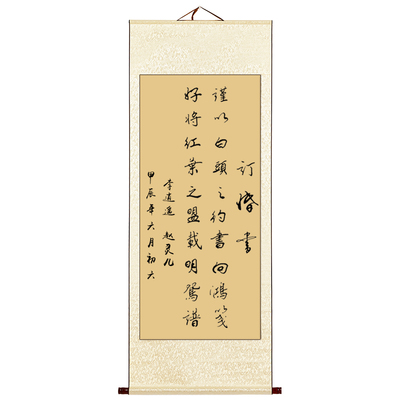 订婚书
谨以白头之约书向鸿笺
好将红叶之盟载明鸳谱
李逍遥 赵灵儿
甲辰年六月初六